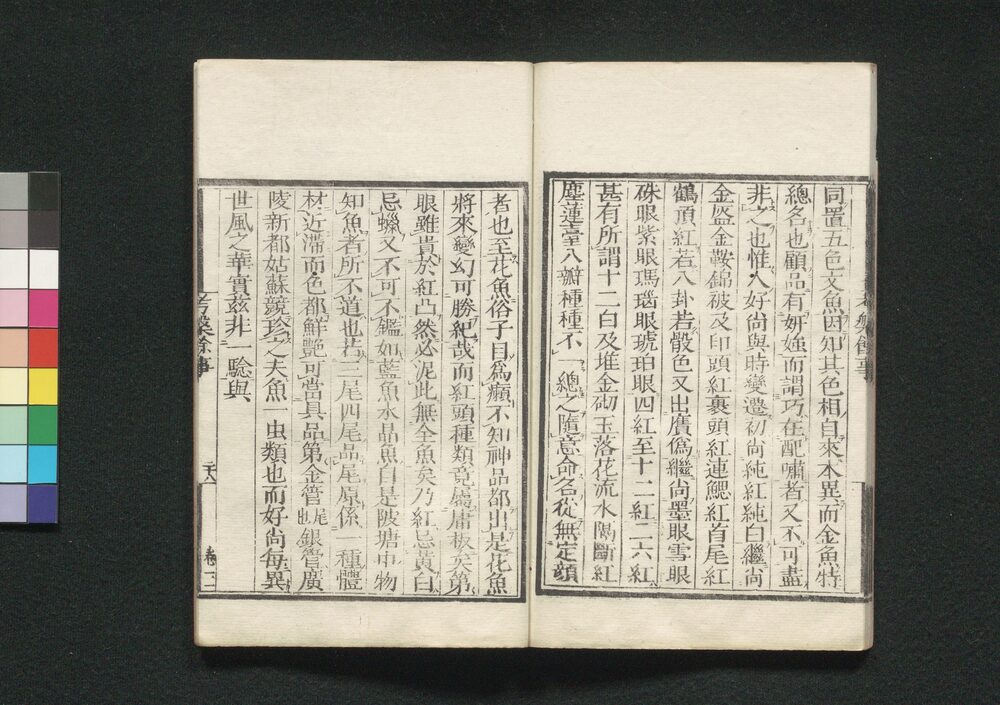 同置五色文魚因知其色相自來本異而金魚特
總名也顧品有妍媸而謂巧在配嘯者又不可盡
非之也惟人好尚與時變遷初尚純紅純白繼尚
金盔金鞍錦被及印頭紅裹頭紅連鰓紅首尾紅
鶴頂紅若八卦若骰色又出贋僞繼尚墨眼雪眼
硃眼紫眼瑪瑙眼琥珀眼四紅至十二紅二六紅
甚有所謂十二白及堆金砌玉落花流水隔斷紅
塵蓮臺八瓣種種不一總之隨意命名從無定顔
者也至花魚俗子目爲癩不知神品都出是花魚
將來變幻可勝紀哉而紅頭種類竟屬庸板矣第
眼雖貴於紅凸然必泥此無全魚矣乃紅忌黃白
忌蠟又不可不鑑如藍魚水晶魚自是陂塘中物
知魚者所不道也若三尾四尾品尾原係一種體
材近滯而色都鮮艷可當具品第金管尾也銀管廣
陵新都姑蘇競珍之夫魚一虫類也而好尚每異
世風之華實茲非一驗與
考槃餘事
卷二